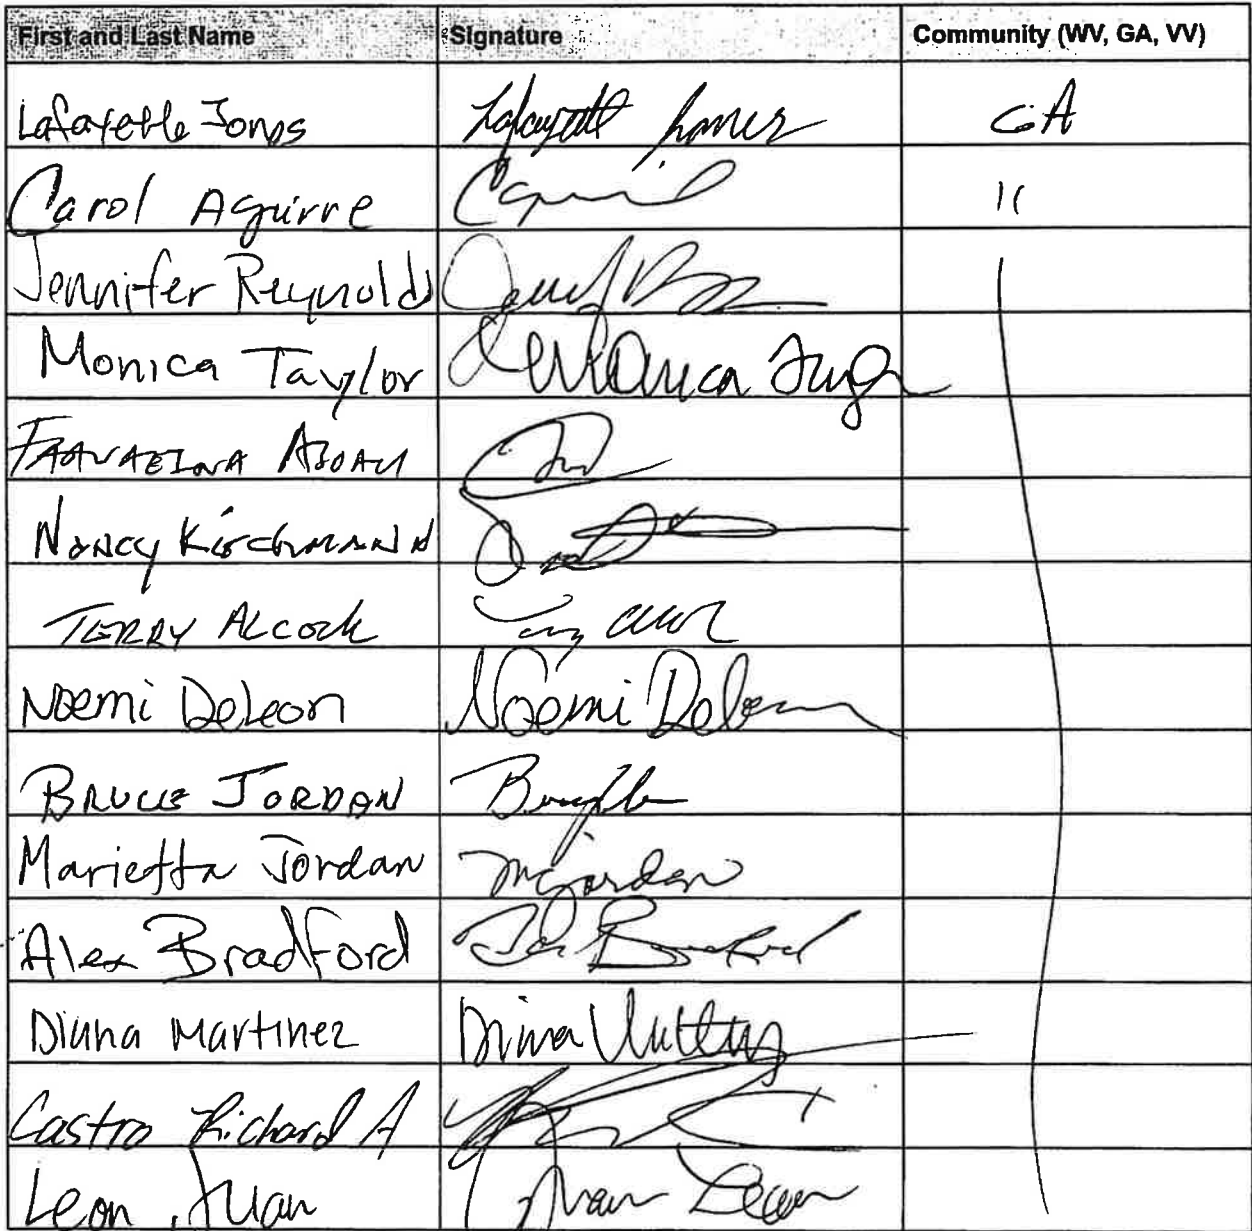 First and Last Name Signature Community (WV, GA, VV)
Lafayette Jones Lafayette Jones GA
Carol Aguirre "
Jennifer Reynolds
Monica Taylor
Nancy Kirschmann
Terry Alcock
Noemi DeLeon Noemi DeLeon
Bruce Jordan
Marietta Jordan MJordan
Alex Bradford Bradford
Diana Martinez Diana
Castro Richard A
Leon, Juan Juan Leon